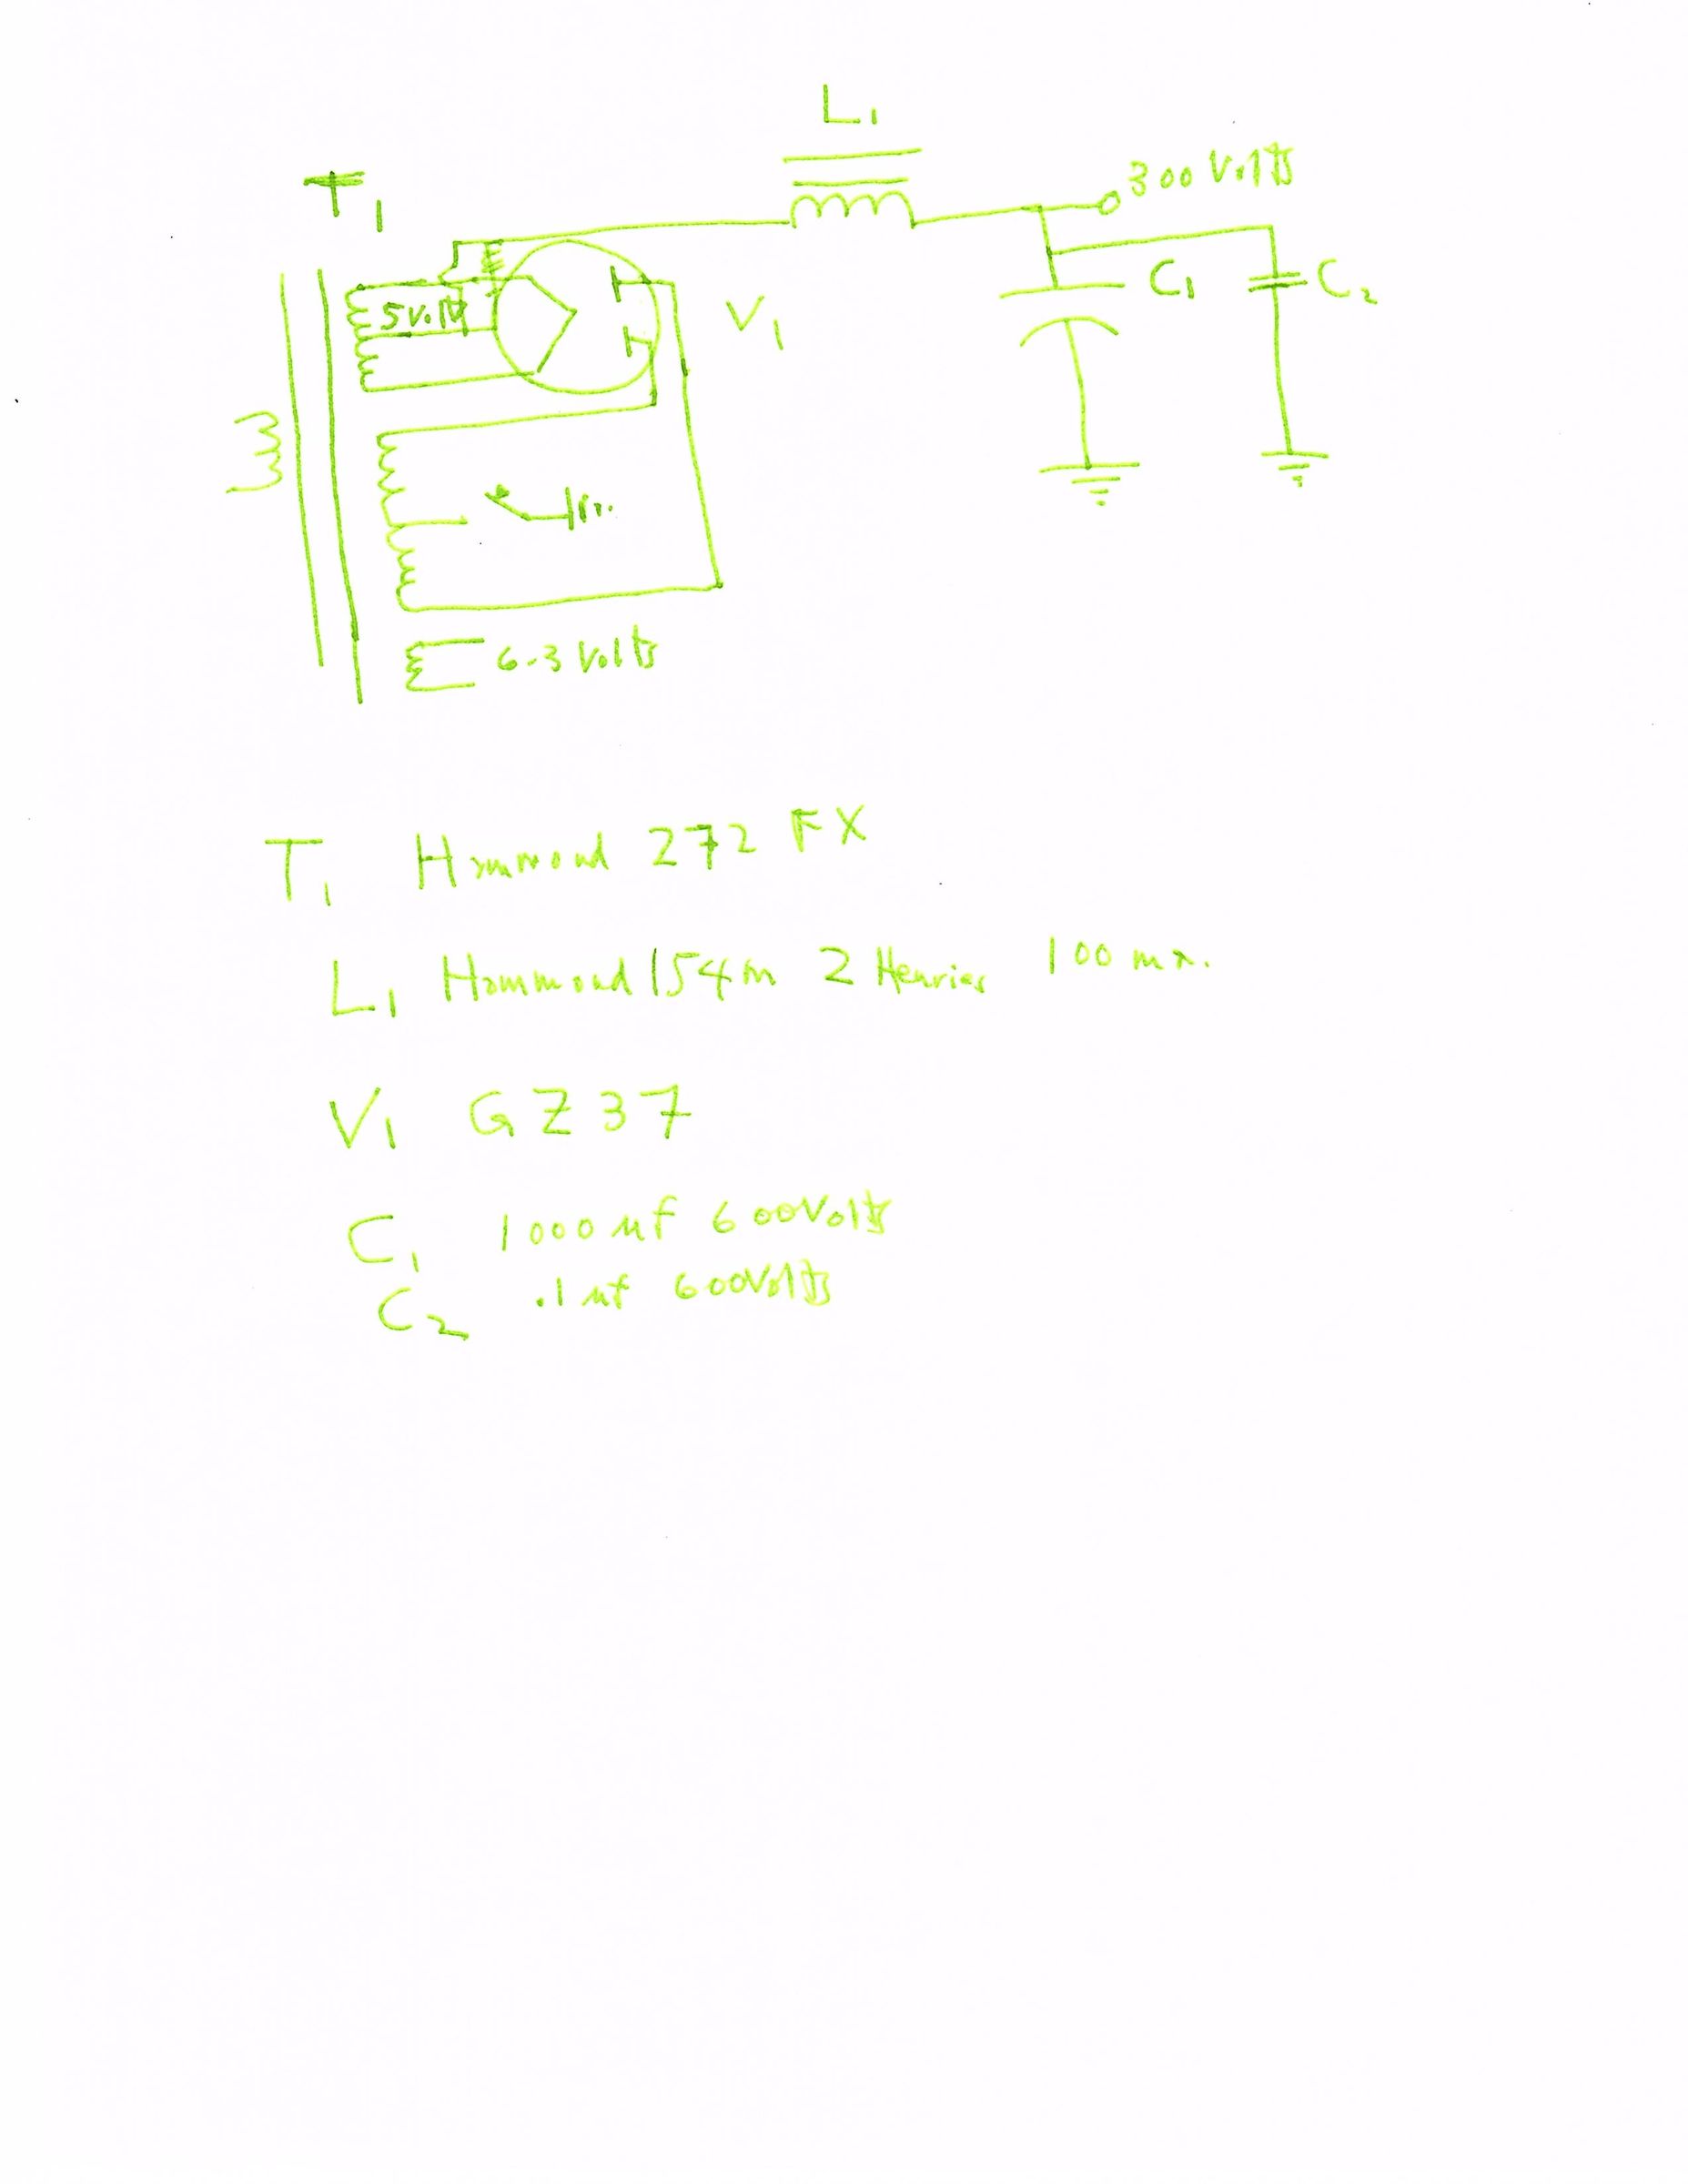 L1
T1
300 Volts
5 Volts
V1
C1
C2
6.3 Volts
T1 Hammond 272 FX
L1 Hammond 154m 2 Henries 100 ma.
V1 GZ37
C1 1000 uf 600Volts
C2 .1 uf 600Volts